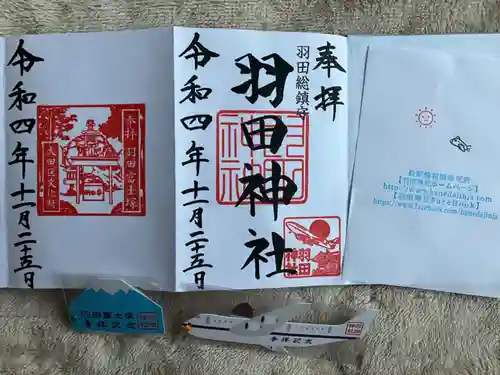 令和四年十一月二十五日
奉拝 羽田富士塚
大田区文化財
奉拝
羽田総鎮守
羽田神社
令和四年十一月二十五日
最新情報御案内所
【羽田神社ホームページ】
http://www.hanedajinja.com
【羽田神社FaceBook】
https://www.facebook.com/hanedajinja
羽田富士塚
参拝記念
参拝記念